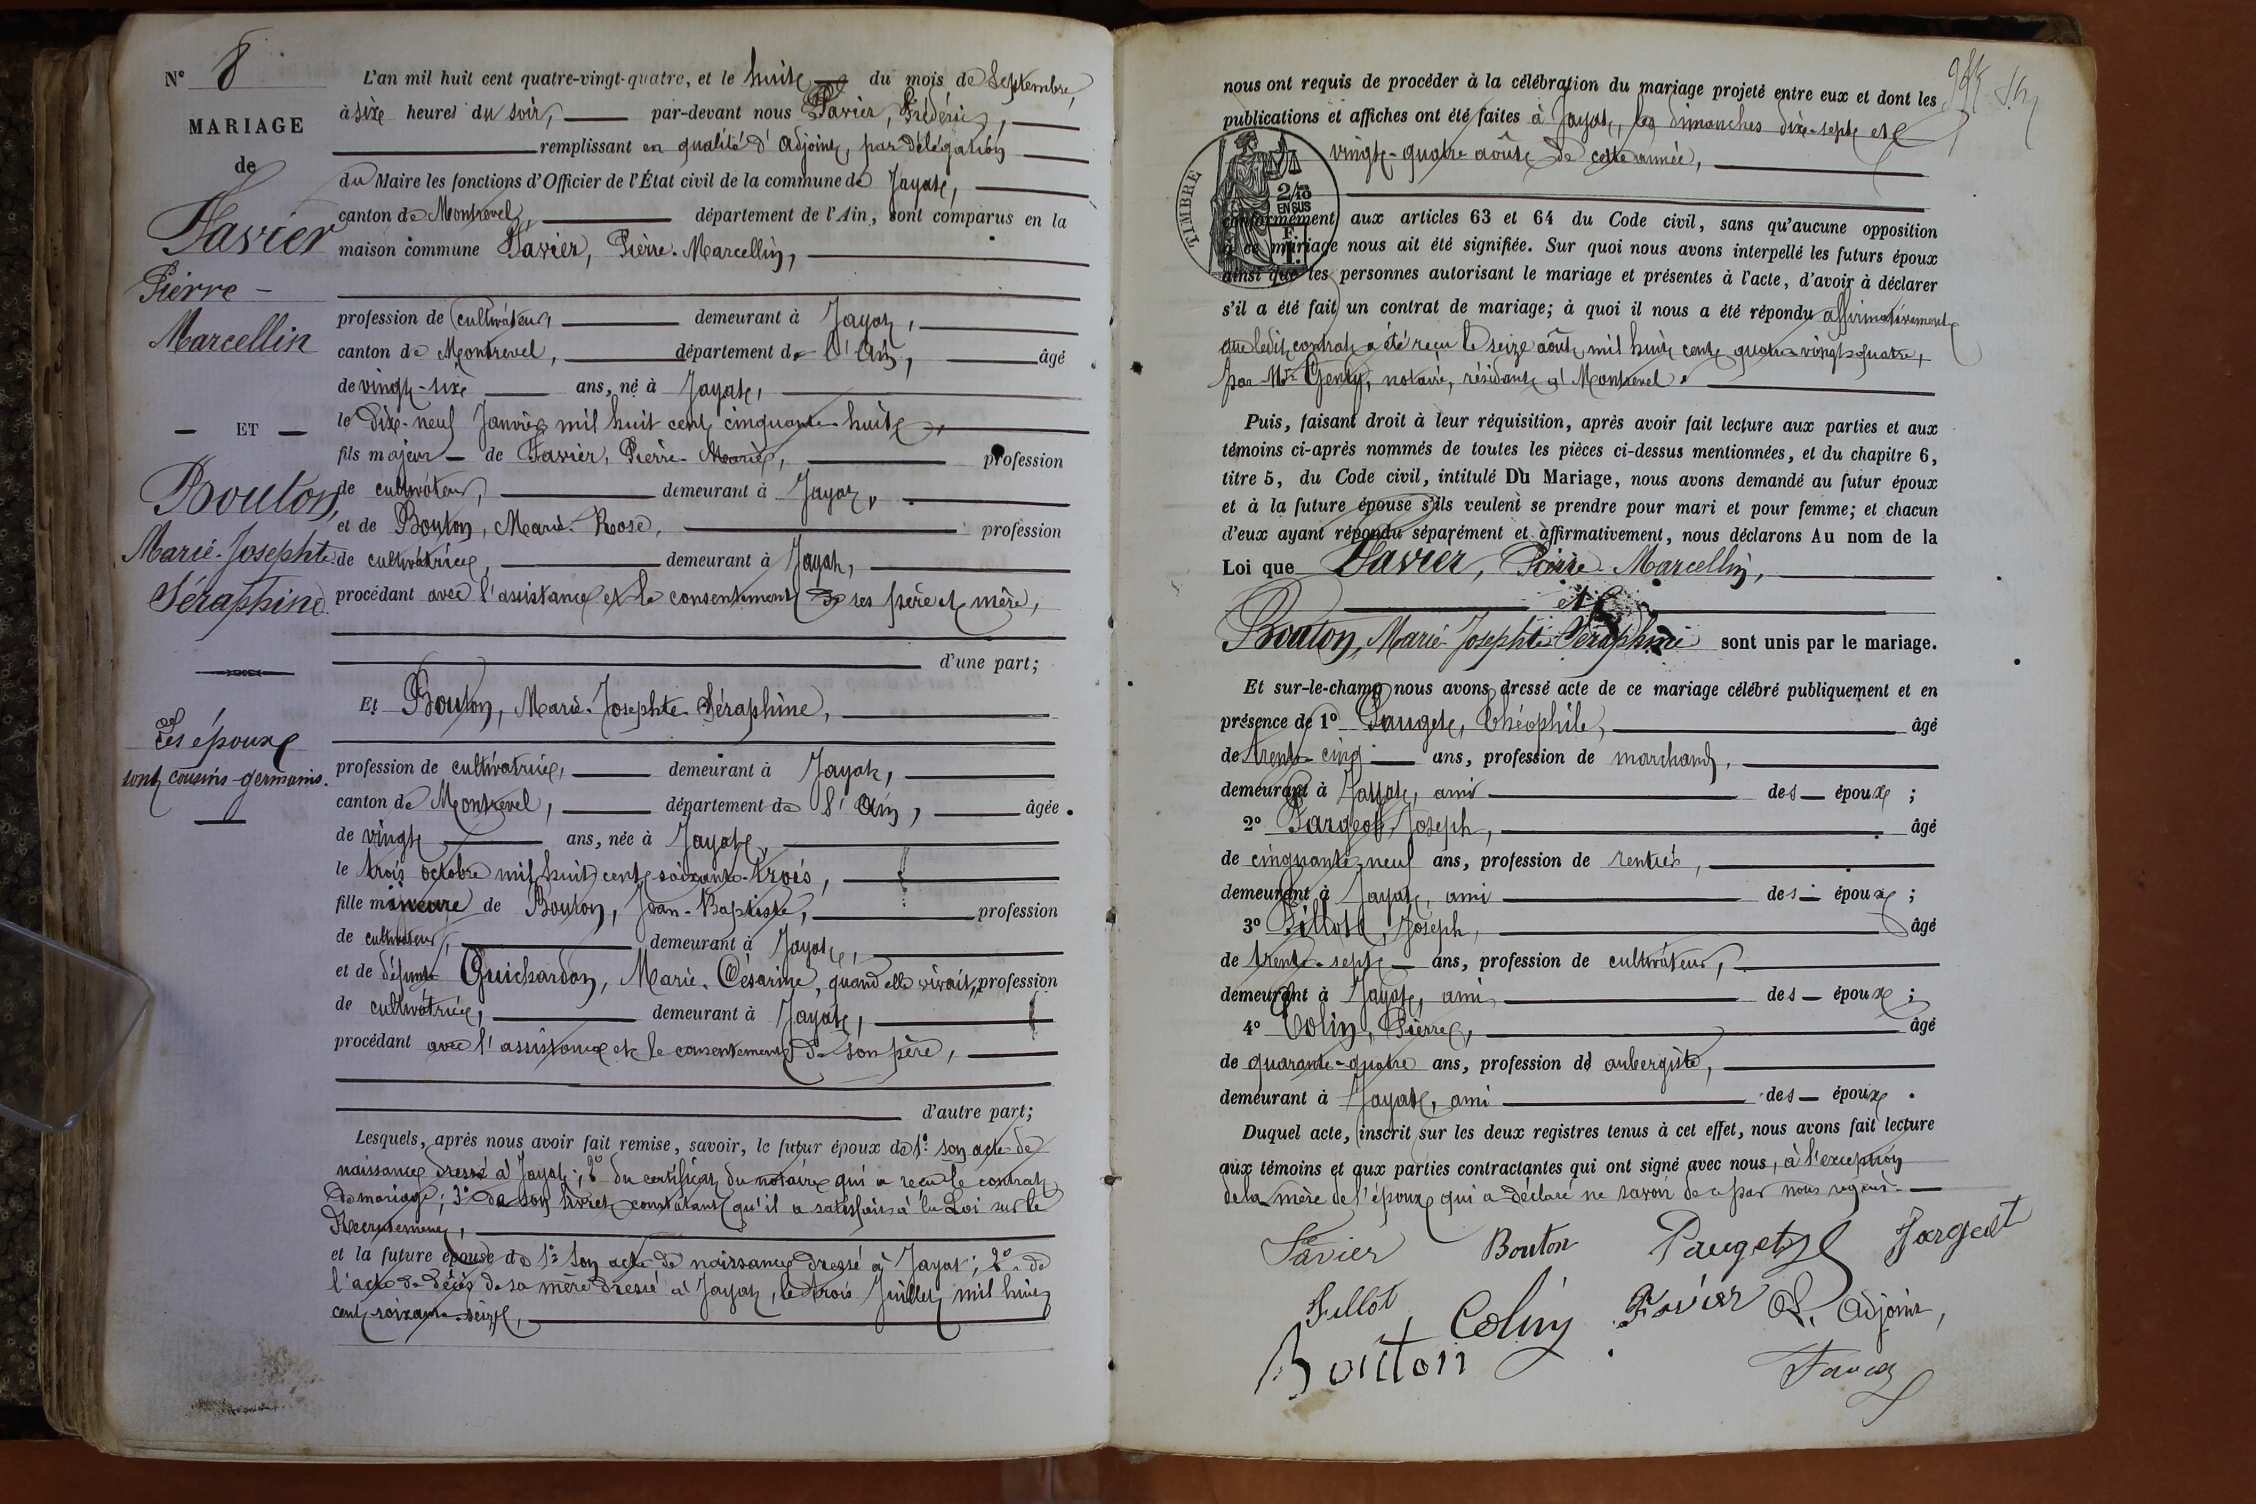 N° 8
MARIAGE
de
Favier
Pierre-
Marcellin
— ET —
Bouton,
Marie-Josephte-
Séraphine.
Les époux
sont cousins-germains.
L'an mil huit cent quatre-vingt-quatre, et le huit du mois de Septembre,
à six heures du soir, par-devant nous Favier, Frédéric,
remplissant en qualité d'adjoint, par délégation
du Maire les fonctions d'Officier de l'État civil de la commune de Jayat,
canton de Montrevel, département de l'Ain, sont comparus en la
maison commune Favier, Pierre-Marcellin,
profession de cultivateur, demeurant à Jayat,
canton de Montrevel, département de l'Ain, âgé
de vingt-six ans, né à Jayat,
le dix-neuf Janvier mil huit cent cinquante-huit,
fils majeur de Favier, Pierre-Marie, profession
de cultivateur, demeurant à Jayat,
et de Bouton, Marie-Rose, profession
de cultivatrice, demeurant à Jayat,
procédant avec l'assistance et le consentement de ses père et mère,
d'une part;
Et Bouton, Marie-Josephte-Séraphine,
profession de cultivatrice, demeurant à Jayat,
canton de Montrevel, département de l'Ain, âgée
de vingt ans, née à Jayat,
le trois octobre mil huit cent soixante-trois,
fille mineure de Bouton, Jean-Baptiste, profession
de cultivateur, demeurant à Jayat,
et de défunte Guichardon, Marie-Césarine, quand elle vivait, profession
de cultivatrice, demeurant à Jayat,
procédant avec l'assistance et le consentement de son père,
d'autre part;
Lesquels, après nous avoir fait remise, savoir, le futur époux de 1° son acte de
naissance dressé à Jayat; 2° du certificat du notaire qui a reçu le contrat
de mariage; 3° de son livret constatant qu'il a satisfait à la Loi sur le
Recrutement,
et la future épouse de 1° son acte de naissance dressé à Jayat; 2° de
l'acte de décès de sa mère dressé à Jayat, le trois Juillet mil huit
cent soixante-seize,
nous ont requis de procéder à la célébration du mariage projeté entre eux et dont les
publications et affiches ont été faites à Jayat, les dimanches dix-sept et
vingt-quatre août de cette année,
TIMBRE
2/10 EN SUS
F.
1.
conformément aux articles 63 et 64 du Code civil, sans qu'aucune opposition
à ce mariage nous ait été signifiée. Sur quoi nous avons interpellé les futurs époux
ainsi que les personnes autorisant le mariage et présentes à l'acte, d'avoir à déclarer
s'il a été fait un contrat de mariage; à quoi il nous a été répondu affirmativement
que ledit contrat a été reçu le seize août mil huit cent quatre-vingt-quatre,
par Me Genty, notaire, résidant à Montrevel.
Puis, faisant droit à leur réquisition, après avoir fait lecture aux parties et aux
témoins ci-après nommés de toutes les pièces ci-dessus mentionnées, et du chapitre 6,
titre 5, du Code civil, intitulé Du Mariage, nous avons demandé au futur époux
et à la future épouse s'ils veulent se prendre pour mari et pour femme; et chacun
d'eux ayant répondu séparément et affirmativement, nous déclarons Au nom de la
Loi que Favier, Pierre-Marcellin,
et
Bouton, Marie-Josephte-Séraphine sont unis par le mariage.
Et sur-le-champ nous avons dressé acte de ce mariage célébré publiquement et en
présence de 1° Pauget, Théophile, âgé
de trente-cinq ans, profession de marchand,
demeurant à Jayat, ami des époux;
2° Fargeot, Joseph, âgé
de cinquante-neuf ans, profession de rentier,
demeurant à Jayat, ami des époux;
3° Fillot, Joseph, âgé
de trente-sept ans, profession de cultivateur,
demeurant à Jayat, ami des époux;
4° Colin, Pierre, âgé
de quarante-quatre ans, profession de aubergiste,
demeurant à Jayat, ami des époux.
Duquel acte, inscrit sur les deux registres tenus à cet effet, nous avons fait lecture
aux témoins et aux parties contractantes qui ont signé avec nous, à l'exception
de la mère de l'époux qui a déclaré ne savoir de ce par nous requis.
Favier Bouton Pauget Fargeot
Fillot Colin Favier adjoint,
Bouton Favier